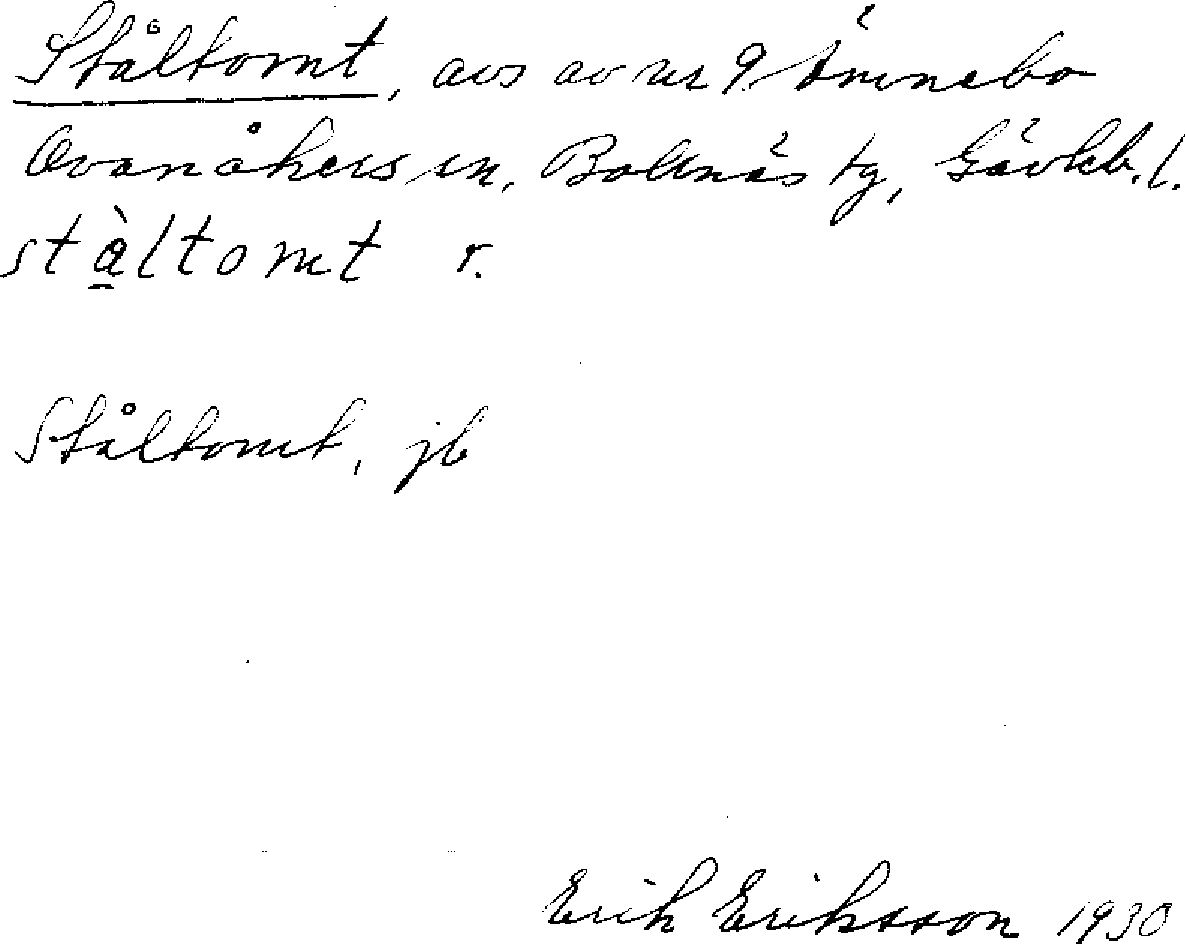 Ståltomt, avs av nr 9 Ämnebo
Ovanåkers sn, Bollnäs tg, Gävleb. l.
stå̀ltomt r.
Ståltomt, jb
Erik Eriksson 1930